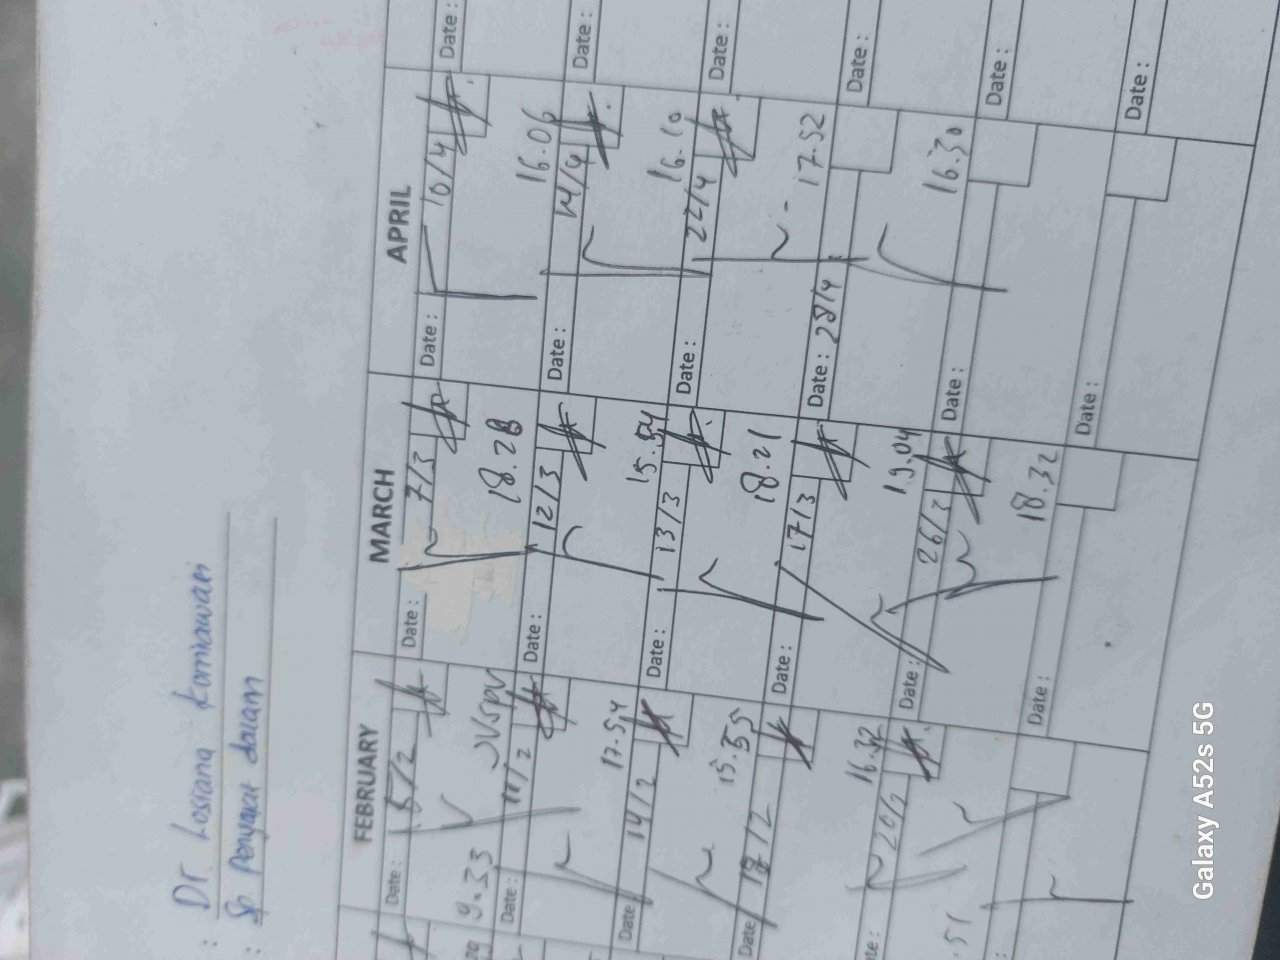 : Dr. Losiana Korniawan
: Sp Penyakit dalam
FEBRUARY
MARCH
APRIL
Date : 5/2
Date : 7/3
Date : 10/4
Date :
9.33
18.28
16.06
Date : 11/2
Date : 12/3
Date : 14/4
Date :
17.54
15.54
16.10
Date 14/2
Date : 13/3
Date : 22/4
Date :
15.55
18.21
17.52
Date 18/2
Date : 17/3
Date : 28/4
Date :
16.32
19.04
16.30
ate : 20/2
Date : 26/3
Date :
Date :
.51
18.32
:
Date :
Date :
Date :
Galaxy A52s 5G